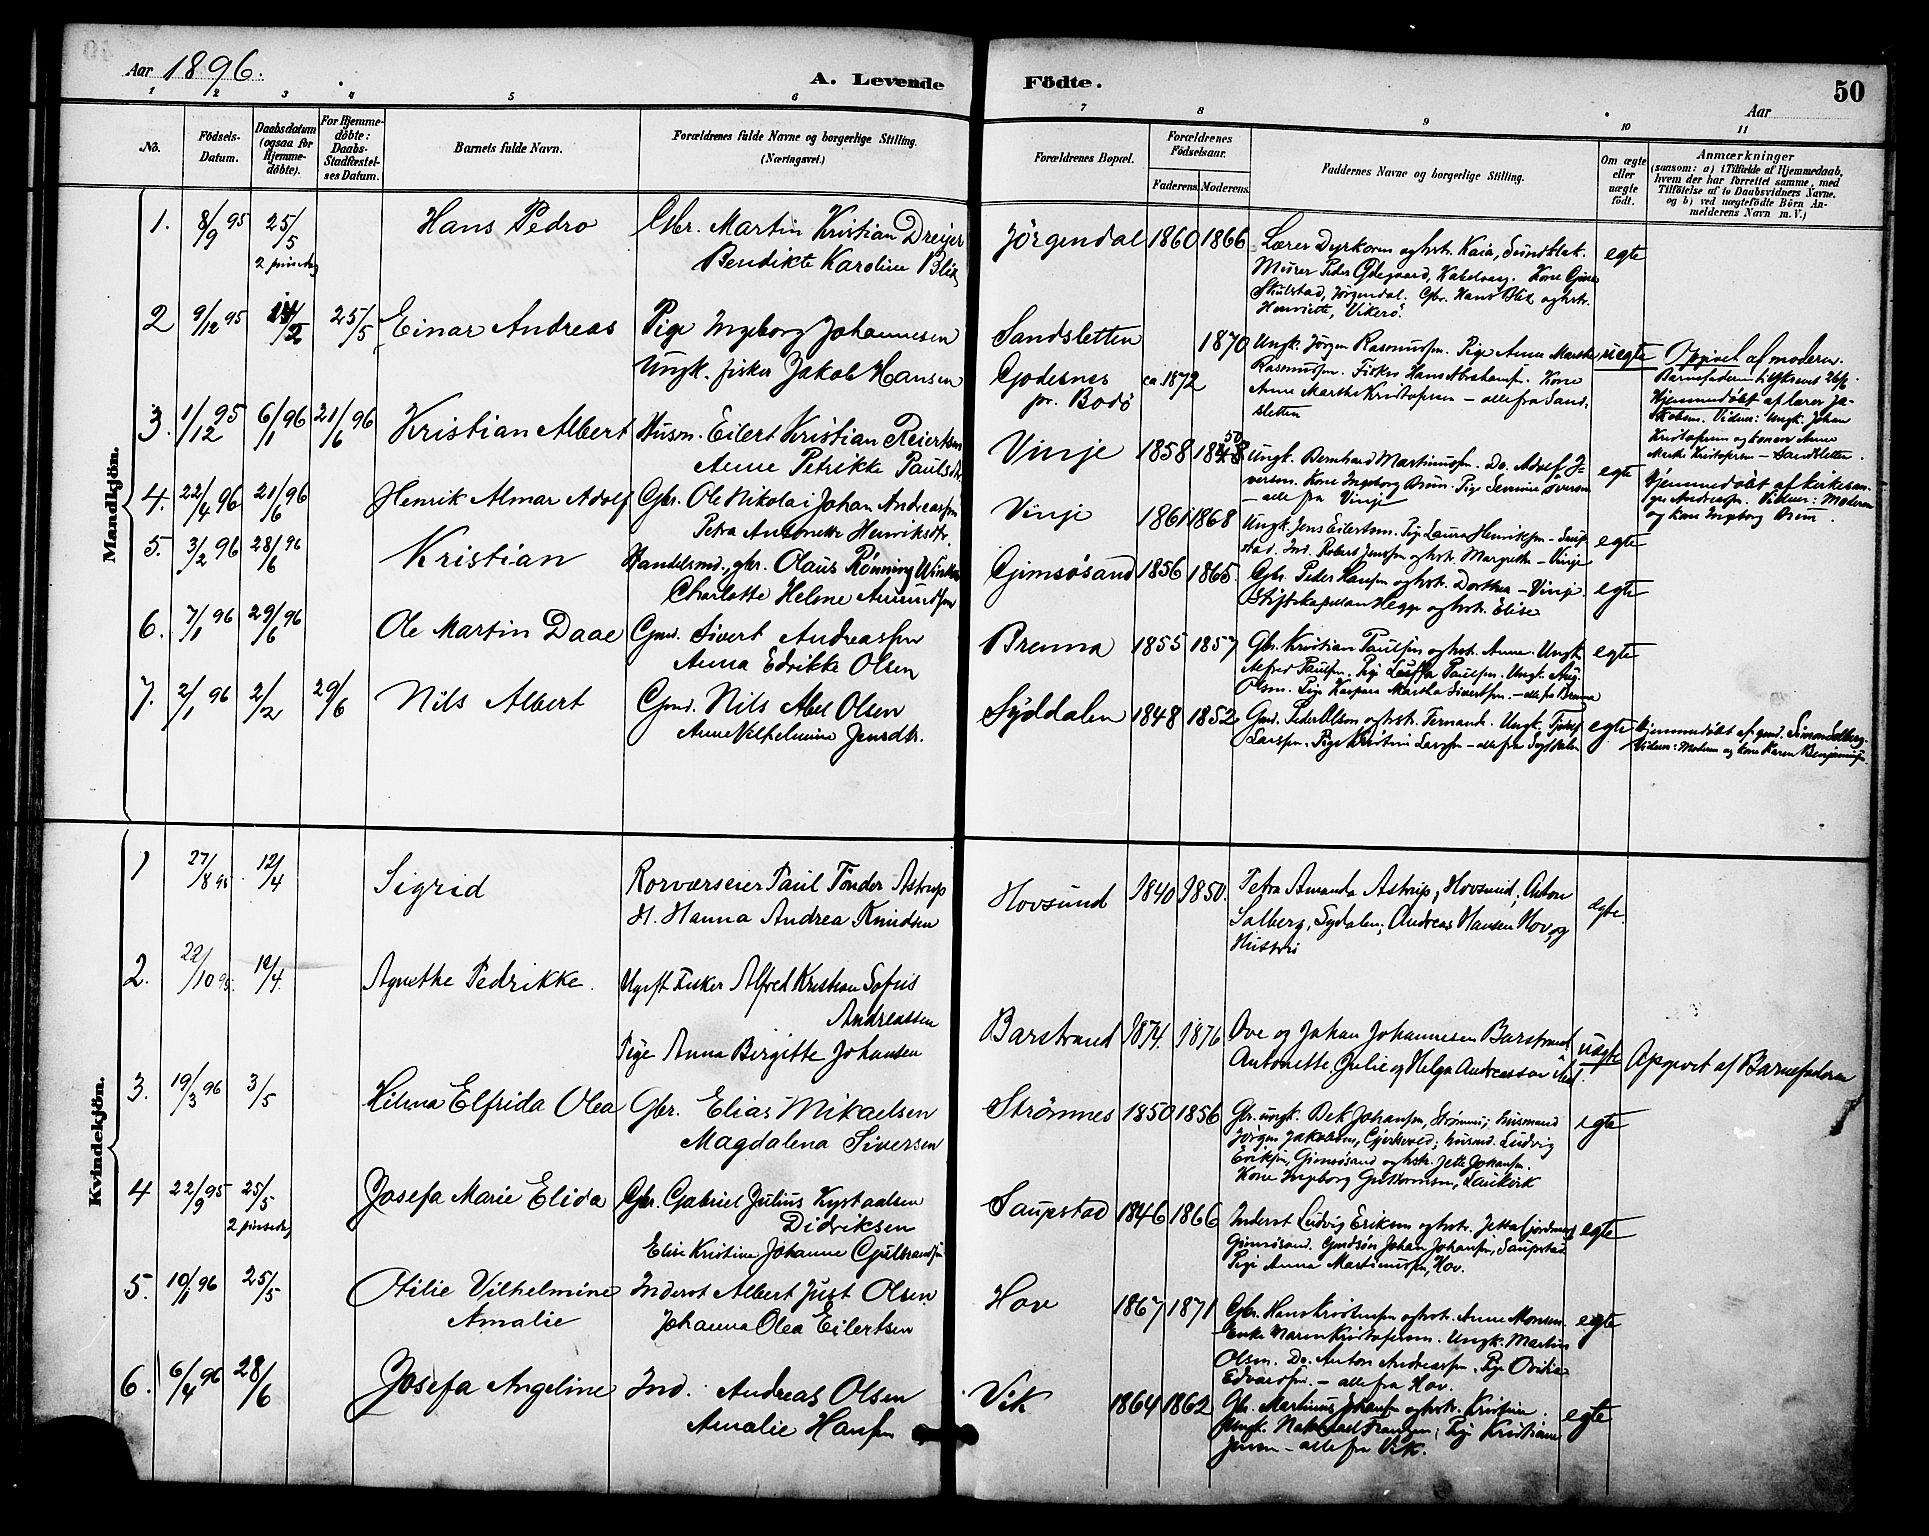 Aar 1896.
A. Levende
Födte.
50
Aar
1 2 3 4 5 6 7 8 9 10 11
No.
Födsels-
Datum.
Daabsdatum
(ogsaa for
Hjemme-
døbte).
For Hjemme-
døbte:
Daabs-
Stadfæstel-
ses Datum.
Barnets fulde Navn.
Forældrenes fulde Navne og borgerlige Stilling.
(Næringsvei.)
Forældrenes Bopæl.
Forældrenes
Fødselsaar.
Faderens. Moderens.
Faddernes Navne og borgerlige Stilling.
Om ægte
eller
uægte
født.
Anmærkninger
(saasom: a) i Tilfælde af Hjemmedaab,
hvem der har forrettet samme, med
Tilføielse af to Daabsvidners Navne.
og b) ved uægtefødte Børn An-
melderens Navn m. V.)
Mandkjön.
1. 8/9 95 25/5 Hans Pedro Gbr. Martin Kristian Dreyer Jörgendal 1860 1866 Lærer Dyrkorn og hstr. Kaia, Sundklak. egte
2 pinsedag Bendikte Karoline Blix Murer Peder Ödegaard, Kabelvaag. Kone
Skulstad, Jörgendal. Gbr. Hans Blix og hstr.
Henriette, Vikerö.
2 9/12 95 25/5 Einar Andreas Pige Ingeborg Johannesen Sandsletten 1870 Ungk. Jörgen Rasmussen. Pige Anna Marthe uegte Opgivet af moderen.
Ungk. fisker Jakob Hansen Godesnes ca 1872 Rasmussen. Fisker Hans Abrahamsen. Kone
pr. Bodö Anne Marthe Kristofersen - alle fra Sand-
sletten
Hjemmedøbt af lærer Ja-
kobsen. Vidner: Ungk. Johan
Kristofersen og konen Anne
Marthe Kristofersen - Sandsletten.
3. 1/12 95 6/1 96 21/6 96 Kristian Albert Husm. Eilert Kristian Reiertsen Vinje 1858 1848 50 Ungk. Bernhard Martinussen. Do. Adolf I- egte Hjemmedøbt af kirkesan-
Anne Petrikke Paulsdtr. versen. Kone Ingeborg Brun. Pige Iversen ger Andreassen. Vidner: Moderen
- alle fra Vinje og kone Ingeborg Brun.
4. 22/4 96 21/6 96 Henrik Almar Adolf Gbr. Ole Nikolai Johan Andreassen Vinje 1861 1868 Ungk. Jens Eilertsen. Pige Laura Henriksen - Saup- egte
Petra Antonette Henriksdtr. stad. Ind. Robert Jensen og hstr. Margrethe - Vinje
5. 3/2 96 28/6 96 Kristian Handelsmd., gbr. Olaus Rønning Gimsøsand 1856 1865. Gbr. Peder Hansen og hstr. Dorthea - Vinje. egte
Charlotte Helene Amundsen Stiftskapellan Hegge og hstr. Elise
6. 7/1 96 29/6 96 Ole Martin Daae Gmd. Sivert Andreassen Brenna 1855 1857 Gbr. Kristian Paulsen og hstr. Anne. Ungk. egte
Anna Edrikke Olsen Alfred Paulsen. Pige Paulsen. Ungk. Aug.
Olsen. Pige Kaspara Martha Sivertsen. - alle fra Brenna
7. 2/1 96 2/2 29/6 Nils Albert Gmd. Nils Abel Olsen Syddalen 1848 1852 Gmd. Peder Olsen og hstr. Fernanda. Ungk. egte Hjemmedøbt af gmd. Simon Solberg.
Anne Vilhelmine Jensdtr. Larsen. Pige Kristine Larsen - alle fra Syddalen Vidner: Moderen og kone Karen Benjaminsen.
Kvindekjön.
1 27/8 95 12/4 Sigrid Rorværseier Paul Tönder Astrup Hovsund 1840 1850. Petra Amanda Astrup, Hovsund, Anton ægte.
H. Hanna Andrea Knudsen Solberg, Sydalen; Andreas Hansen Hov og
Hustru
2. 22/10 95. Agnethe Pedrikke. Ugift Fisker Alfred Kristian Sofus
Andreassen
Pige Anna Birgitte Johansen Barstrand 1874. 1876 Ove og Johan Johannesen Barstrand uægte Opgivet af Barnefaderen
Antonette, Julie og Helga Andreassen
3. 19/3 96 3/5 Hilma Elfrida Olea Gbr. Elias Mikaelsen Strömnes 1850 1856 Gbr. ungk. Johansen, Strömnes; husmand egte
Magdalena Siversen Jörgen Jakobsen, husmd. Ludvig
Eriksen, Gimsøsand og hstr. Jette Johansen.
Kone Ingeborg Guttormsen, Laukvik
4 22/9 95 25/5 Josefa Marie Elida Gbr. Gabriel Julius Krystadsen Saupstad 1846 1866 Inderst Ludvig Eriksen og hstr. Jetta egte
2 pinsedag Didriksen Gimsøsand. Gmdsøn Johan Johansen, Saupstad
Elise Kristine Johanne Gulbrandsen Pige Anna Martinussen, Hov.
5. 10/1 96 25/5 Otilie Vilhelmine Inderst Albert Just Olsen Hov 1867 1871 Gbr. Hans Kristensen og hstr. Anne Monsen. egte
Amalie Johanna Olea Eilertsen Enke Maren Kristofersen. Ungk. Martin
Olsen. Do. Anton Andreassen. Pige
Edvardsen. - alle fra Hov.
6. 6/4 96 28/6 Josefa Angeline Ind. Andreas Olsen Vik 1864 1862 Gbr. Martinus Johansen og hstr. Kristine. egte
Amalie Hansen Ungk. Fransen; Pige Kristiane
Jensen - alle fra Vik.